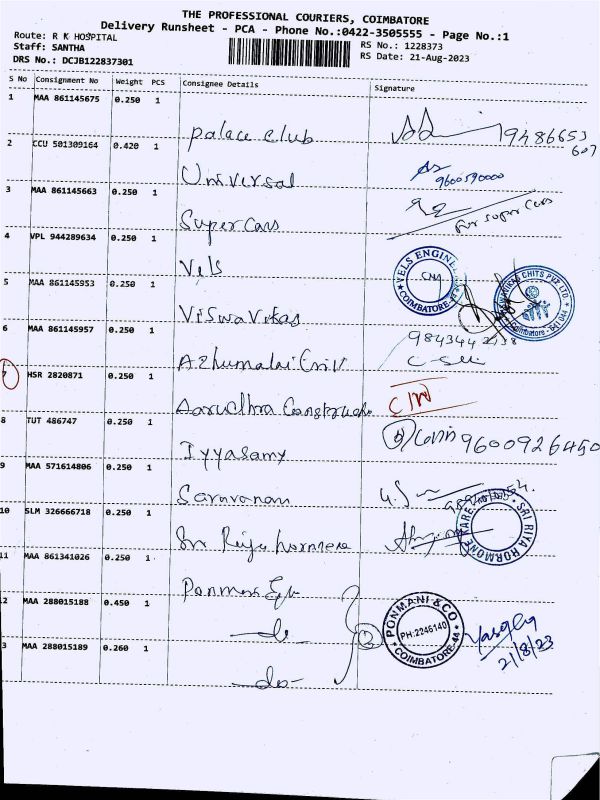 THE PROFESSIONAL COURIERS, COIMBATORE
Delivery Runsheet - PCA - Phone No.:0422-3505555 - Page No.:1
Route: R K HOSPITAL
Staff: SANTHA
DRS No.: DCJB122837301
RS No.: 1228373
RS Date: 21-Aug-2023
S No Consignment No Weight PCS Consignee Details Signature
1 MAA 861145675 0.250 1
Palace Club 19486653
607
2 CCU 501309164 0.420 1
Universal 9600590000
3 MAA 861145663 0.250 1
Super Cars For Super Cars
4 VPL 944289634 0.250 1
Vels VELS ENGINE COIMBATORE
5 MAA 861145953 0.250 1
Viswa Vikas CHITS PVT LTD Coimbatore
6 MAA 861145957 0.250 1
984344
Azhumalai
7 HSR 2820871 0.250 1
Aarudhra
8 TUT 486747 0.250 1
Iyyasamy 9600926450
9 MAA 571614806 0.250 1
Saravanan
10 SLM 326666718 0.250 1
Sri SRI RIYA HORMONE KARE
11 MAA 861341026 0.250 1
2 MAA 288015188 0.450 1
-do- PONMANI & CO PH:2246140 COIMBATORE-44
3 MAA 288015189 0.260 1
21/8/23
-do-